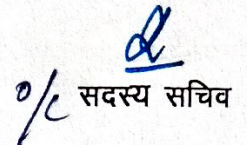 o/c सदस्य सचिव